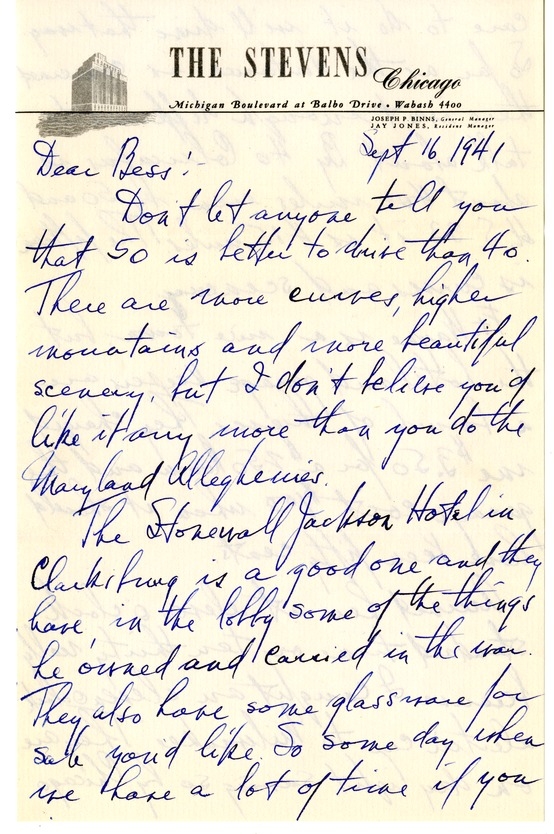 THE STEVENS
Chicago
Michigan Boulevard at Balbo Drive • Wabash 4400
JOSEPH P. BINNS, General Manager
JAY JONES, Resident Manager
Sept 16, 1941
Dear Bess:-
Don't let anyone tell you
that 50 is better to drive than 40.
There are more curves, higher
mountains and more beautiful
scenery, but I don't believe you'd
like it any more than you do the
Maryland Alleghenies.
The Stonewall Jackson Hotel in
Clarksburg is a good one and they
have in the lobby some of the things
he owned and carried in the war.
They also have some glassware for
sale you'd like. So some day when
we have a lot of time if you